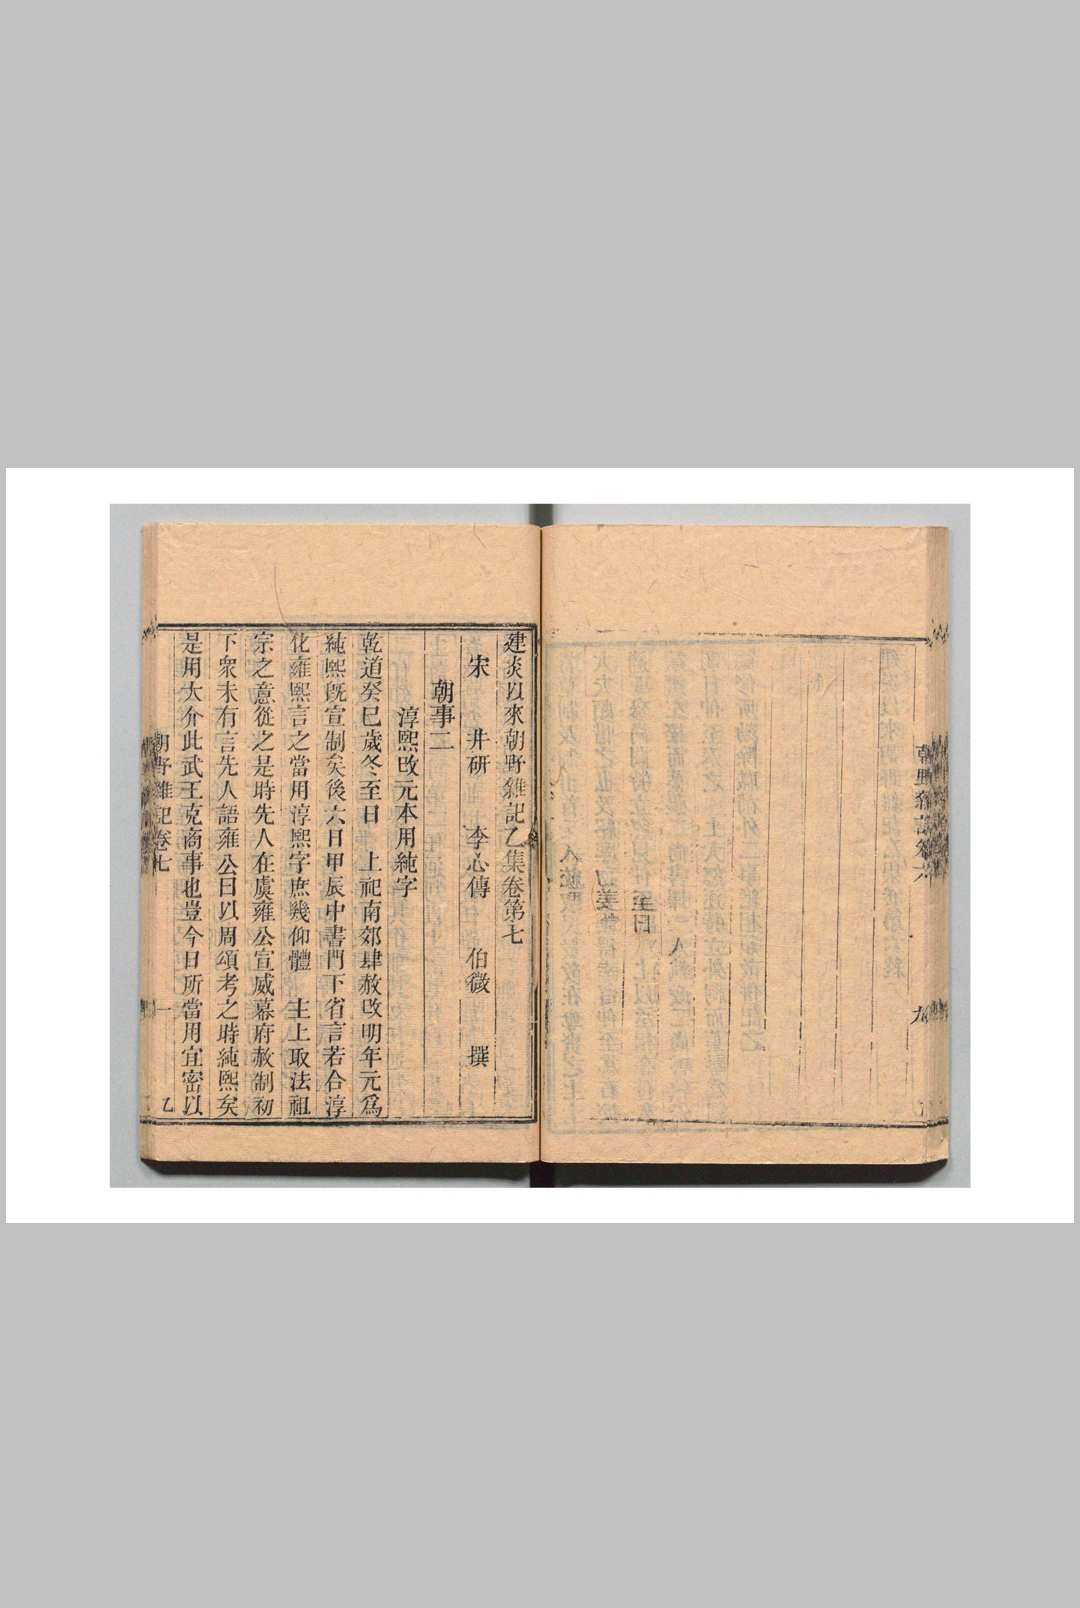 朝野雜記卷六
九
建炎以來朝野雜記乙集卷第七
宋 井研 李心傳 伯微 撰
朝事二
淳熙改元本用純字
乾道癸巳歲冬至日 上祀南郊肆赦改明年元爲
純熙旣宣制矣後六日甲辰中書門下省言若合淳
化雍熙言之當用淳熙字庶幾仰體 主上取法祖
宗之意從之是時先人在虞雍公宣威幕府赦制初
下衆未有言先人語雍公曰以周頌考之時純熙矣
是用大介此武王克商事也豈今日所當用宜密以
朝野雜記卷七
一
乙